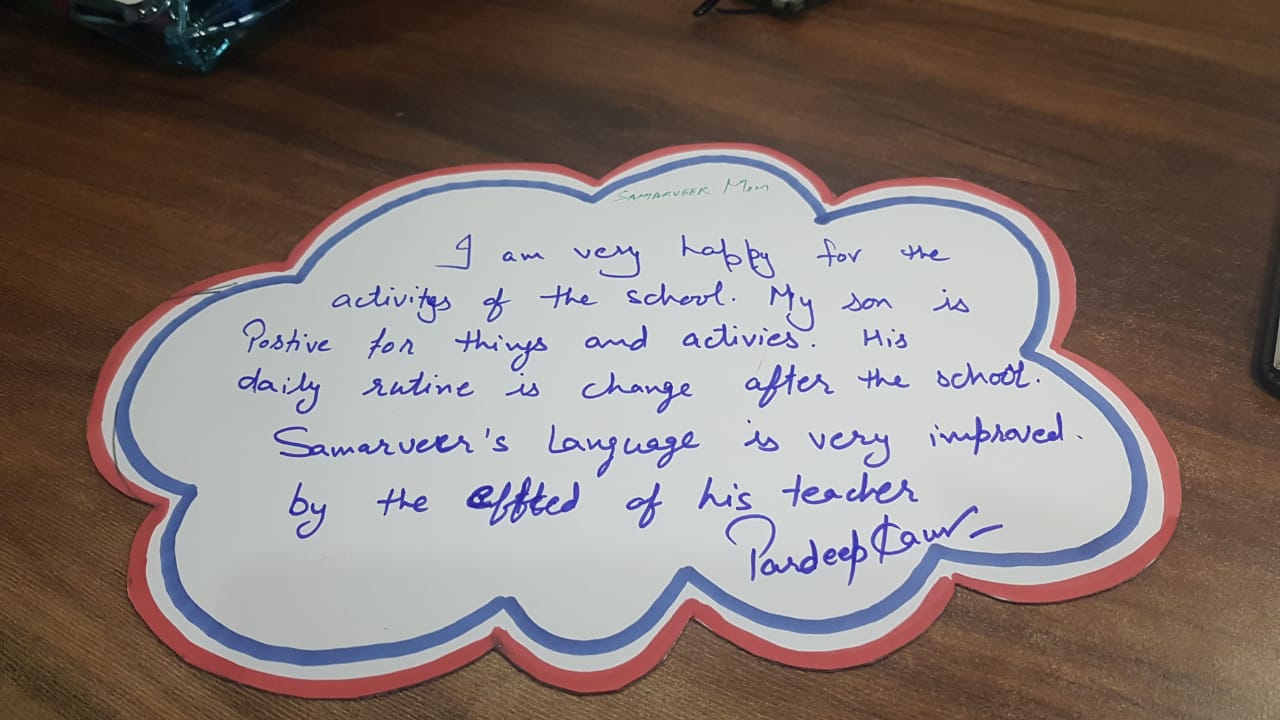 SAMARVEER Mom
I am very happy for the
activitys of the school. My son is
Postive for things and activies. His
daily rutine is change after the school.
Samarveer's Language is very improved.
by the effted of his teacher
Pardeep Kaur